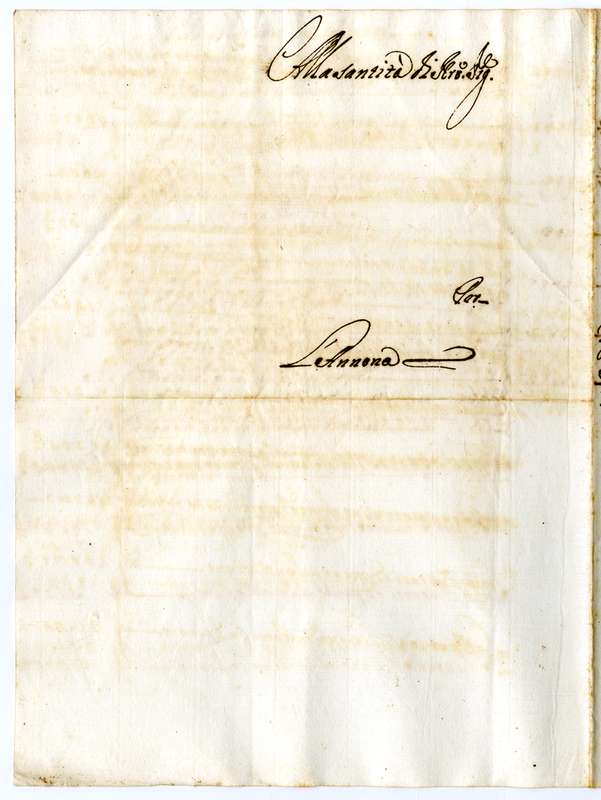 Alla santità di Nro. Sig.
Per
L'Annona